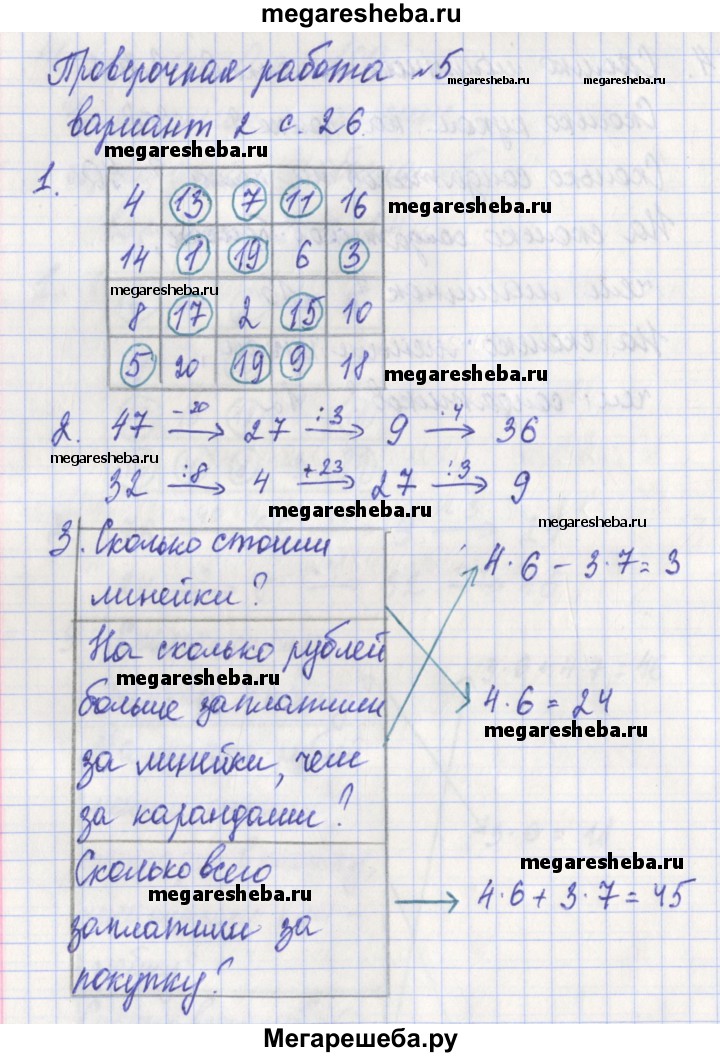 megaresheba.ru
Проверочная работа №5
megaresheba.ru megaresheba.ru
вариант 2 с. 26
megaresheba.ru
1.
4 13 7 11 16
megaresheba.ru
14 1 19 6 3
megaresheba.ru
8 17 2 15 10
5 20 19 9 18
megaresheba.ru
2. 47 −20 → 27 :3 → 9 ·4 → 36
megaresheba.ru
32 :8 → 4 +23 → 27 :3 → 9
megaresheba.ru
megaresheba.ru
3. Сколько стоили
линейки?
4·6 − 3·7 = 3
На сколько рублей
megaresheba.ru
больше заплатили
за линейки, чем
за карандаши?
4·6 = 24
megaresheba.ru
Сколько всего
megaresheba.ru
заплатили за
покупку?
megaresheba.ru
4·6 + 3·7 = 45
Мегарешеба.ру